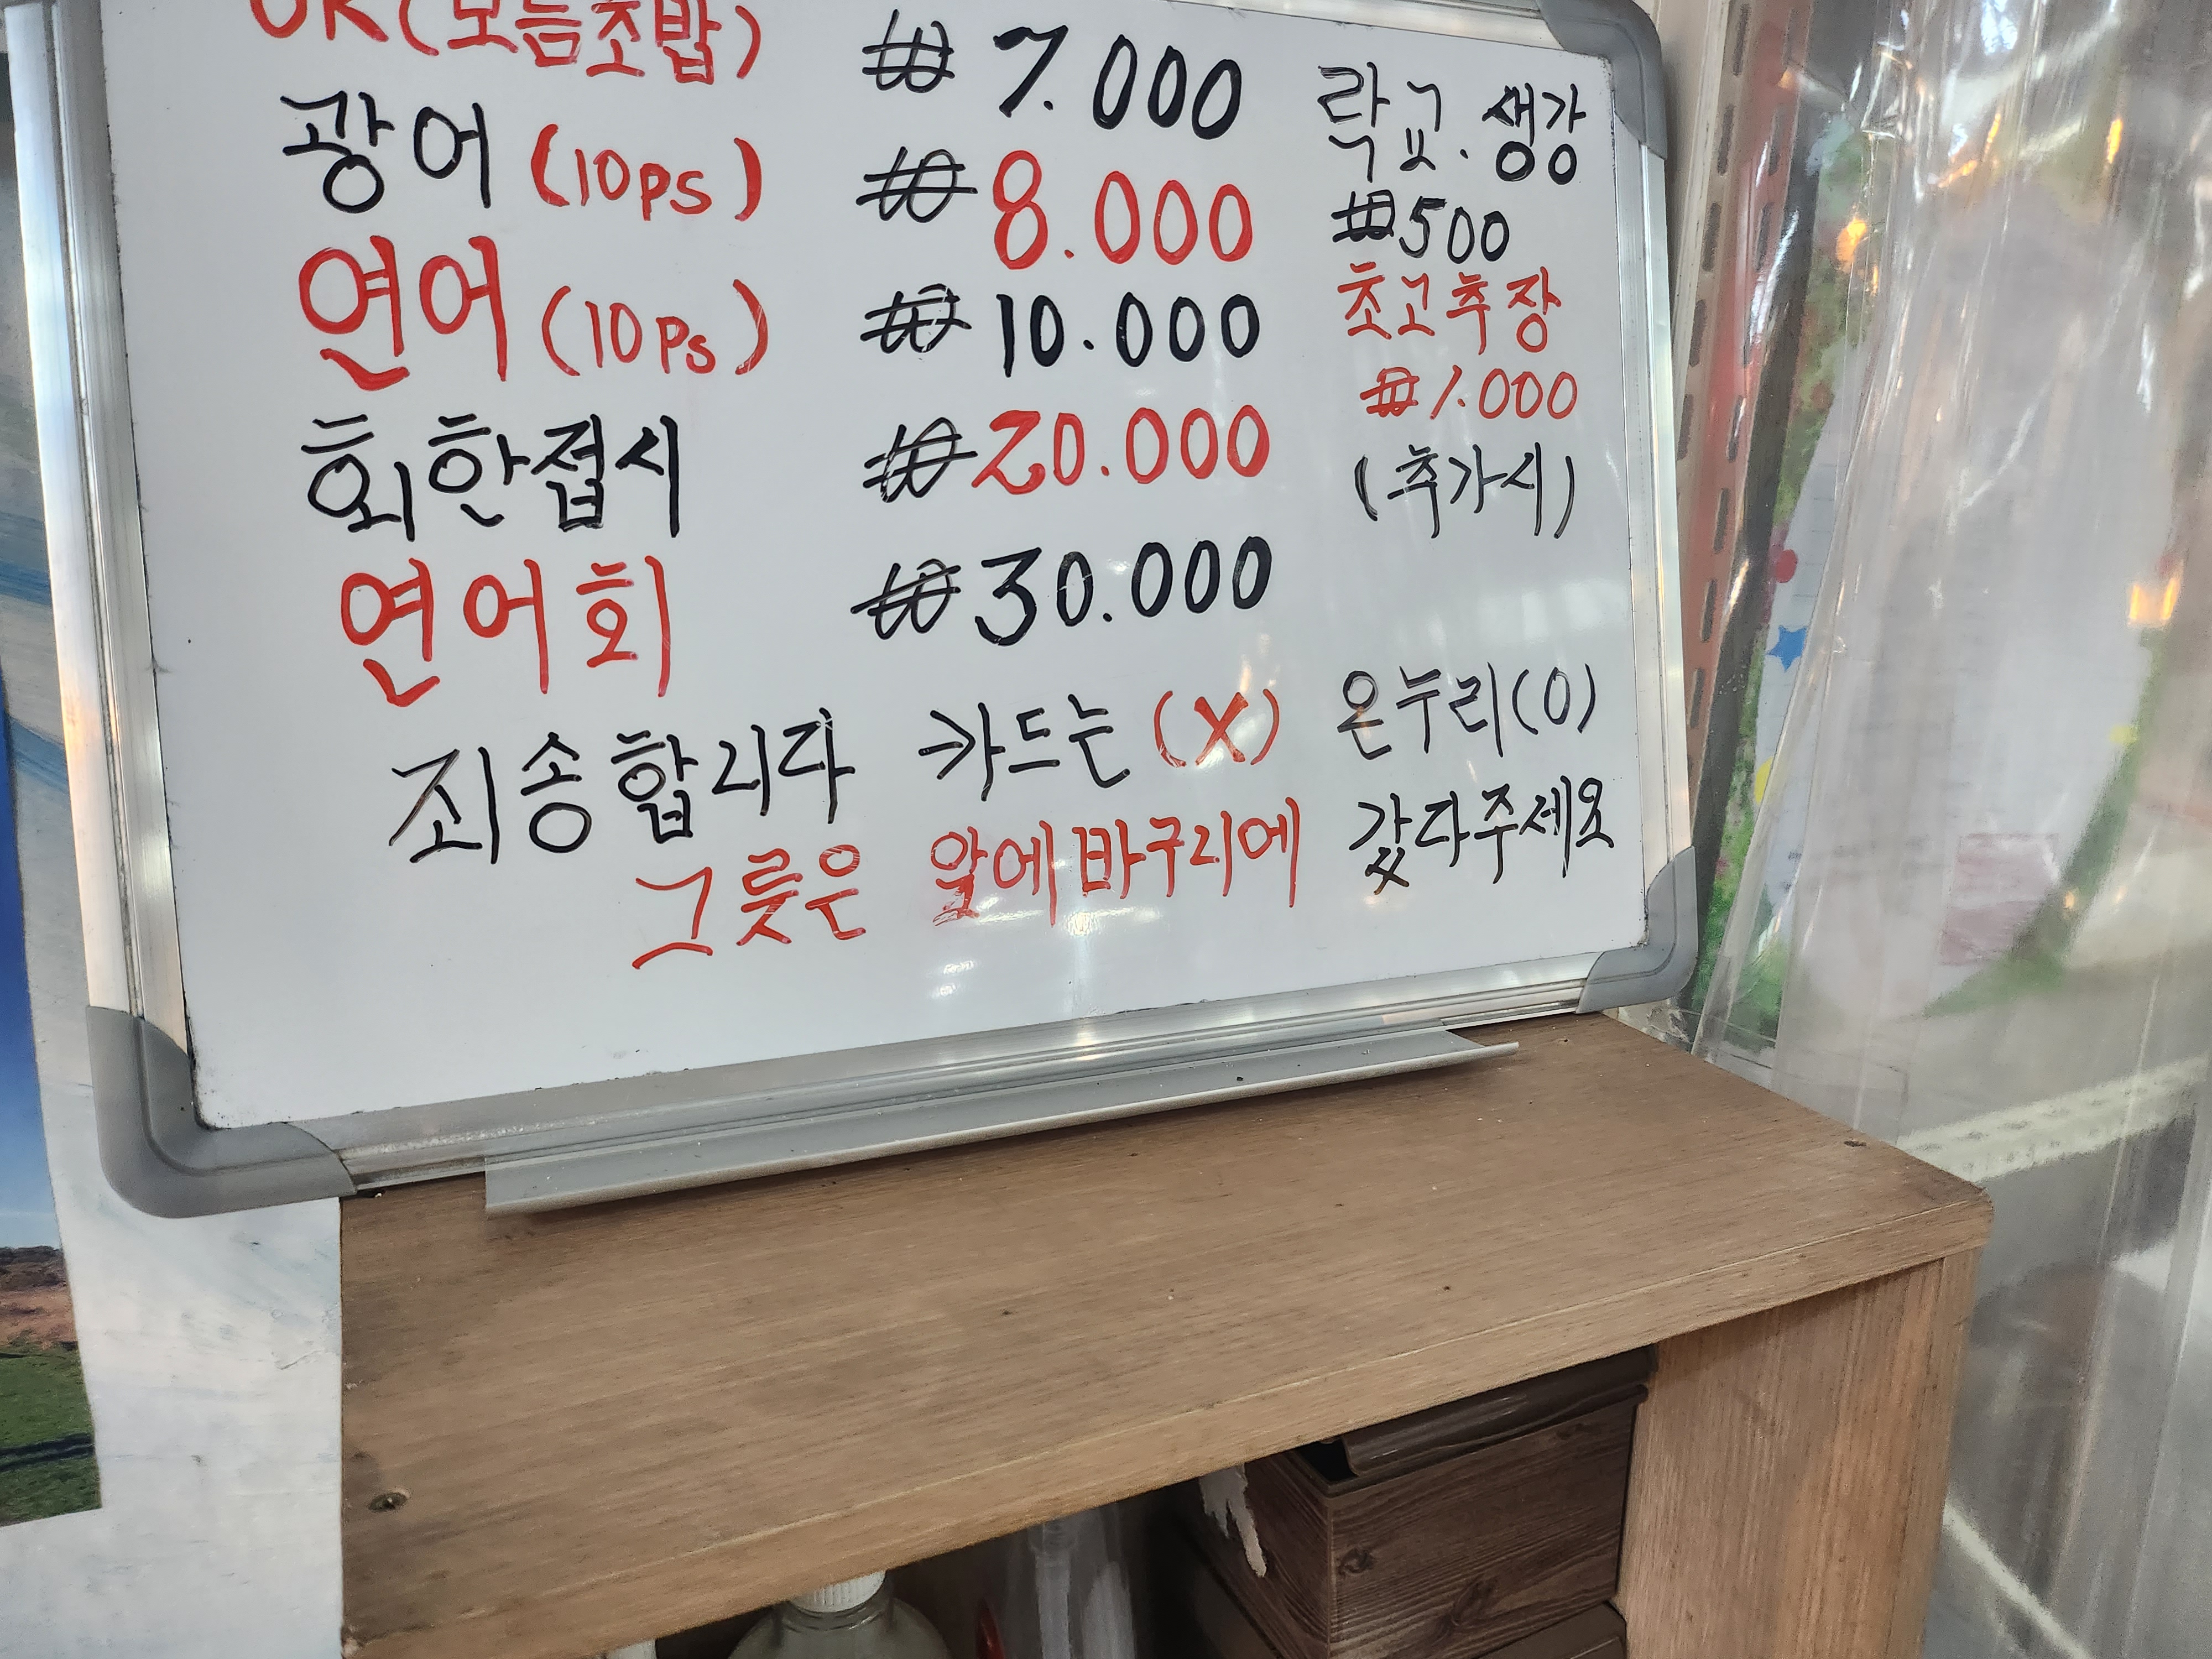 (모듬초밥) ₩7.000
광어 (10ps) ₩8.000
연어 (10ps) ₩10.000
회한접시 ₩20.000
연어회 ₩30.000
락교. 생강
₩500
초고추장
₩1.000
(추가시)
죄송합니다 →카드는 (X) 온누리(O)
그릇은 앞에 바구리에 갔다주세요